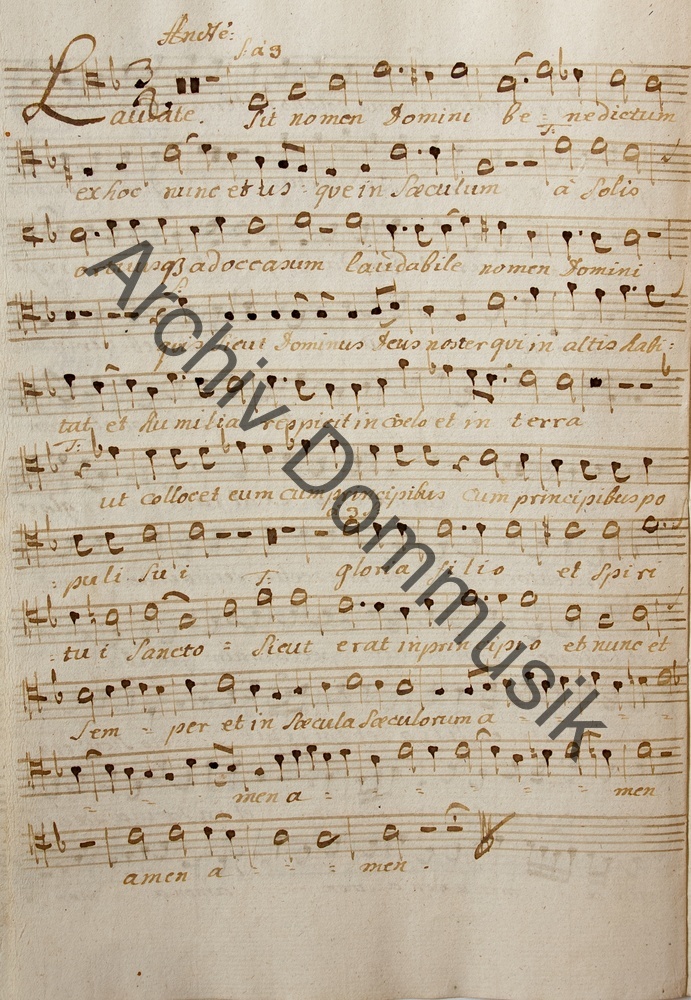 Andte:
S: a 3
Laudate. Sit nomen Domini be = nedictum
T:
ex hoc nunc et us = que in sæculum à Solis
ad occasum laudabile nomen Domini
sicut Dominus Deus noster qui in altis habi =
tat et humilia respicit in cœlo et in terra
T:
ut collocet eum cum principibus cum principibus po
a 3.
= puli sui T: gloria filio et spiri
= tui Sancto = Sicut erat in principio et nunc et
Sem = per et in Sæcula Sæculorum a = = = =
= = = men a = = = = = men
amen a = = = men.
Archiv Dommusik